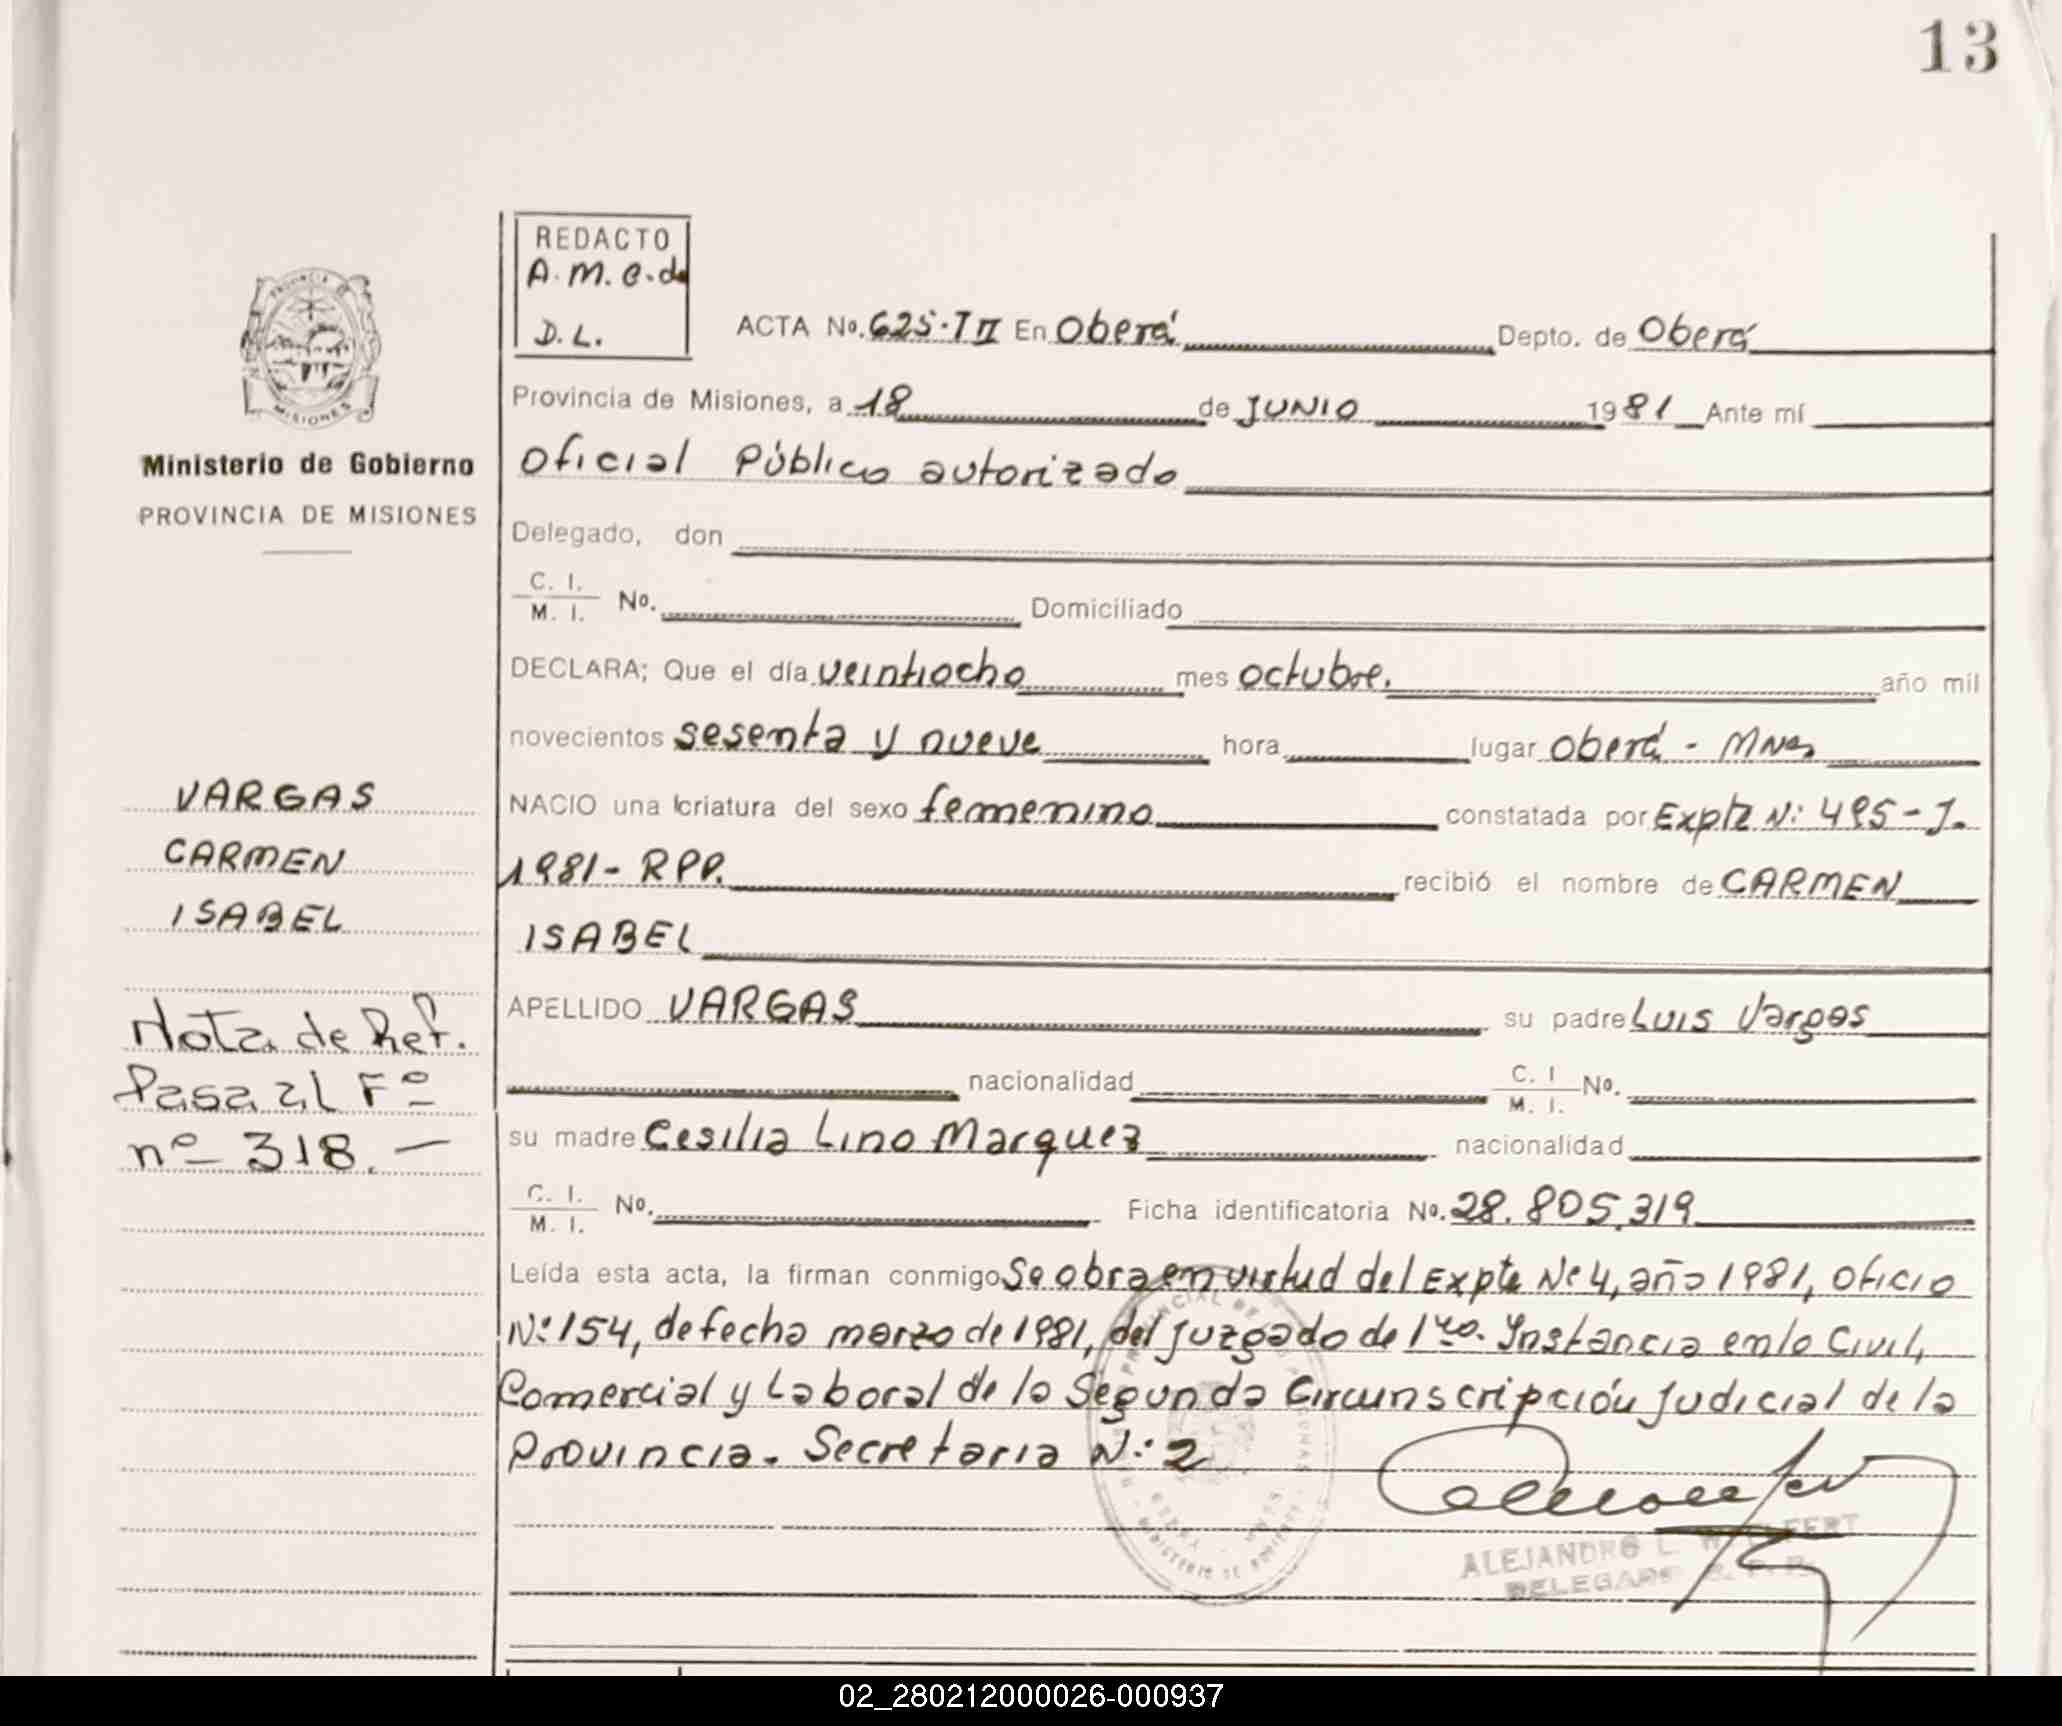 13
REDACTO
A.M.C.de
D.L.
PROVINCIA DE
MISIONES
Ministerio de Gobierno
PROVINCIA DE MISIONES
ACTA No. 625-T II En Oberá Depto. de Oberá
Provincia de Misiones, a 18 de JUNIO 1981 Ante mí
Oficial Público autorizado
Delegado, don
C. I.
M. I. No. Domiciliado
DECLARA; Que el día veintiocho mes octubre. año mil
novecientos sesenta y nueve hora lugar Oberá - Mnes
NACIO una criatura del sexo femenino constatada por Expte N: 495-J.
1981- RPP. recibió el nombre de CARMEN
ISABEL
APELLIDO VARGAS su padre Luis Vargas
nacionalidad C. I
M. I. No.
su madre Cesilia Lino Marquez nacionalidad
C. I.
M. I. No. Ficha identificatoria No. 28.805.319
Leída esta acta, la firman conmigo Se obra en virtud del Expte Nº 4, año 1981, Oficio
N:154, de fecha marzo de 1981, del Juzgado de 1ra. Instancia en lo Civil,
Comercial y Laboral de la Segunda Circunscripción Judicial de la
Provincia. Secretaria N: 2
VARGAS
CARMEN
ISABEL
Nota de Ref.
Pasa al Fº
nº 318. —
ALEJANDRO L.
DELEGADO
02_280212000026-000937